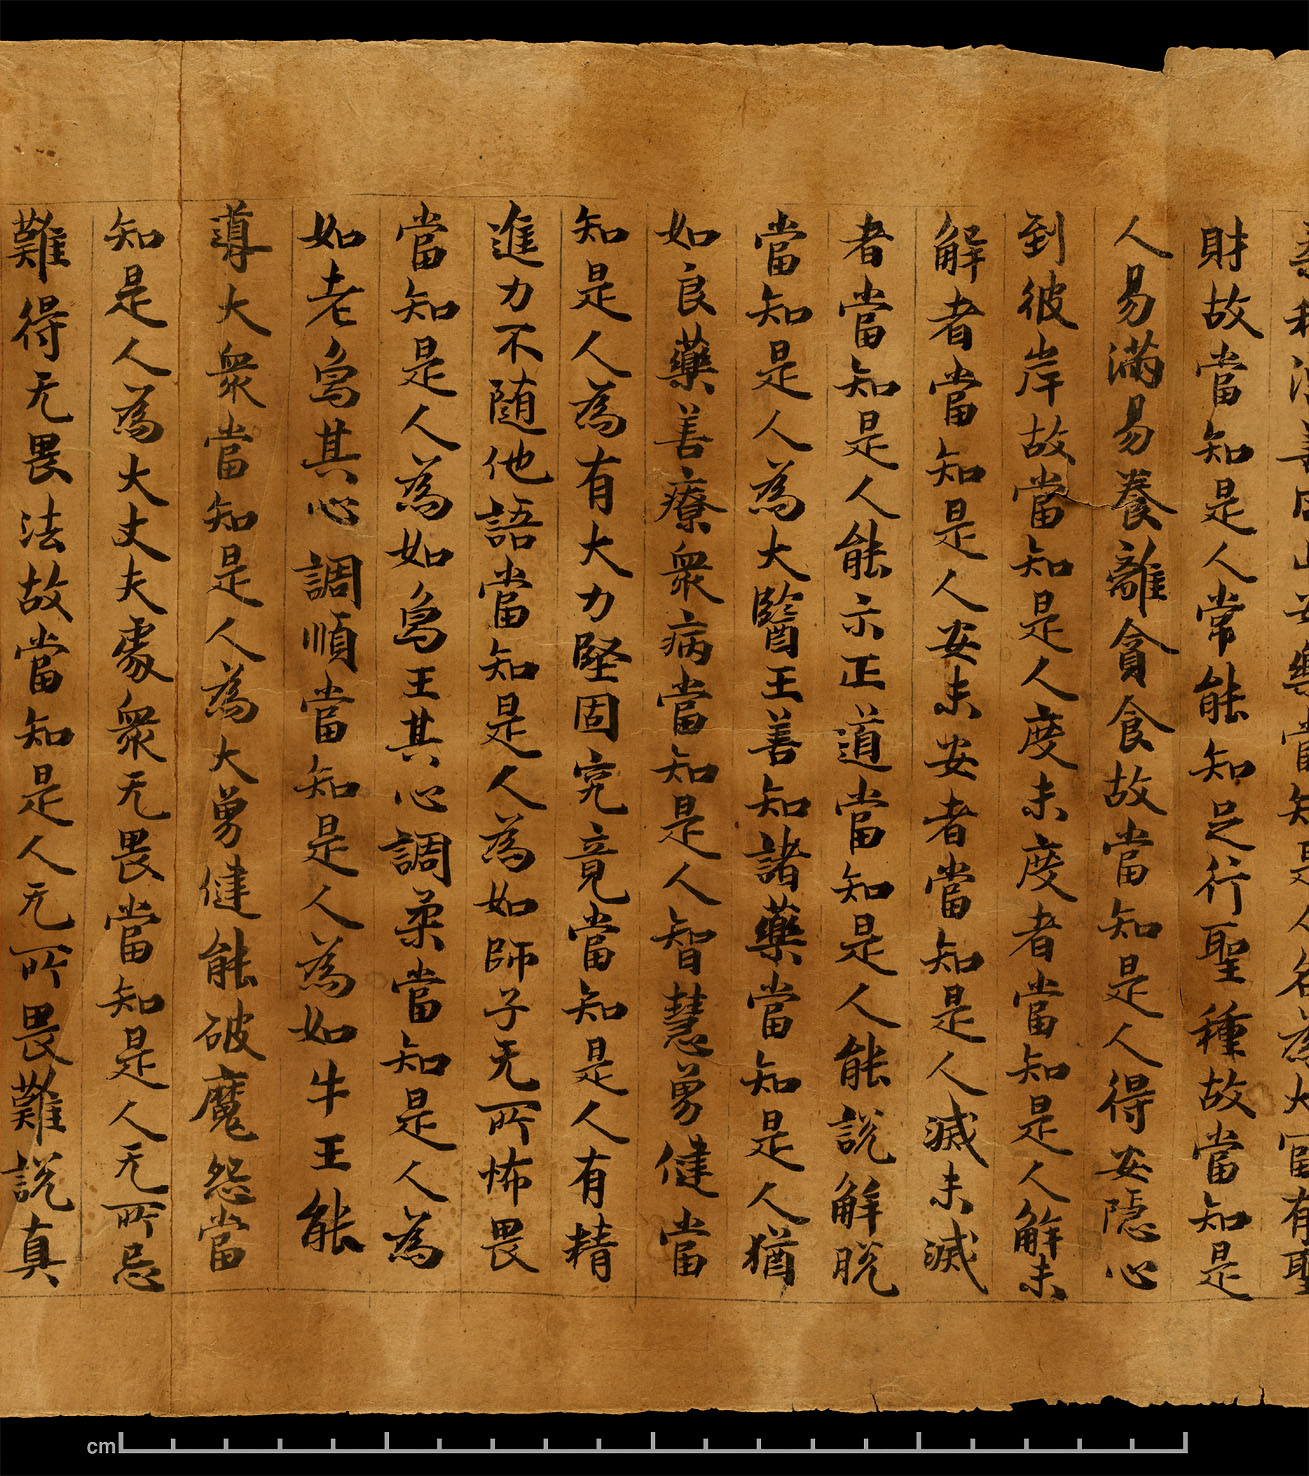 樂當知是人名為大富有聖
財故當知是人常能知足行聖種故當知是
人易滿易養離貪食故當知是人得安隱心
到彼岸故當知是人度未度者當知是人解未
解者當知是人安未安者當知是人滅未滅
者當知是人能示正道當知是人能說解脫
當知是人為大醫王善知諸藥當知是人猶
如良藥善療衆病當知是人智慧勇健當
知是人為有大力堅固究竟當知是人有精
進力不随他語當知是人為如師子无所怖畏
當知是人為如象王其心調柔當知是人為
如老象其心調順當知是人為如牛王能
導大衆當知是人為大勇健能破魔怨當
知是人為大丈夫處衆无畏當知是人无所忌
難得无畏法故當知是人无所畏難說真
cm